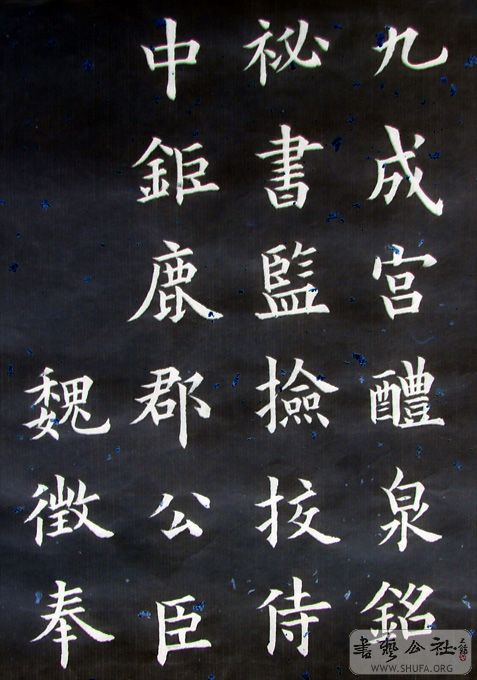 九成宮醴泉銘
祕書監撿挍侍
中鉅鹿郡公臣
魏徵奉
書藝公社
WWW.SHUFA.ORG